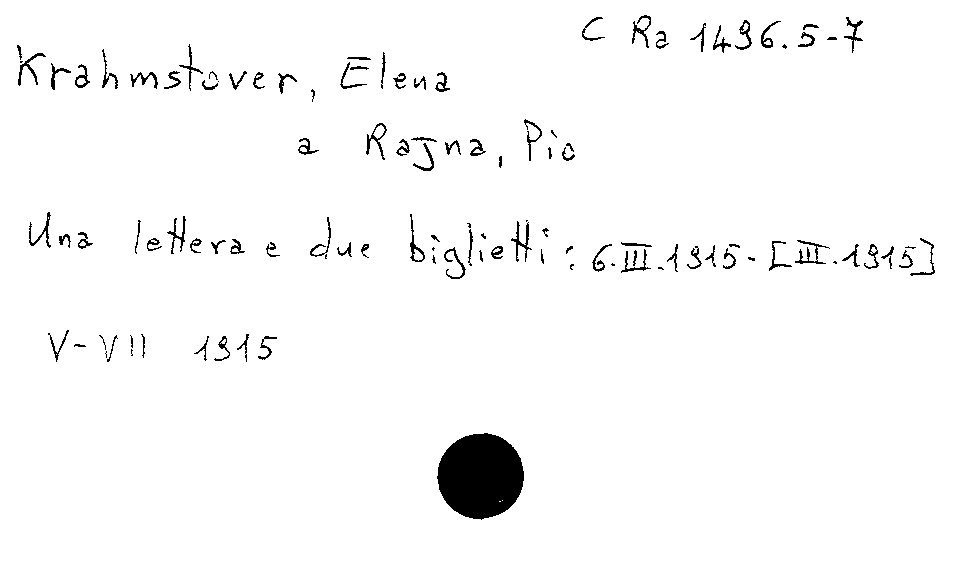 C Ra 1496.5-7
Krahmstover, Elena
a Rajna, Pio
Una lettera e due biglietti: 6.III.1915-[III.1915]
V-VII 1915